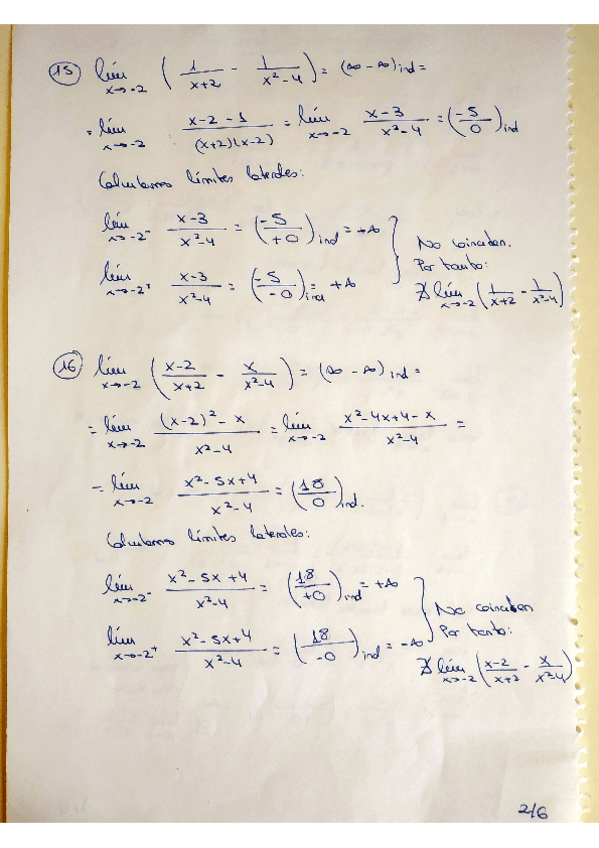 15 lím x→-2 ( 1/(x+2) - 1/(x²-4) ) = (∞ - ∞) ind =
= lím x→-2 (x-2-1)/((x+2)(x-2)) = lím x→-2 (x-3)/(x²-4) = (-5/0) ind
Calculamos límites laterales:
lím x→-2⁻ (x-3)/(x²-4) = (-5/+0) ind = +∞
lím x→-2⁺ (x-3)/(x²-4) = (-5/-0) ind = +∞
No coinciden.
Por tanto:
∄ lím x→-2 (1/(x+2) - 1/(x²-4))
16 lím x→-2 ( (x-2)/(x+2) - x/(x²-4) ) = (∞ - ∞) ind =
= lím x→-2 ((x-2)² - x)/(x²-4) = lím x→-2 (x²-4x+4-x)/(x²-4) =
= lím x→-2 (x²-5x+4)/(x²-4) = (18/0) ind.
Calculamos límites laterales:
lím x→-2⁻ (x²-5x+4)/(x²-4) = (18/+0) ind = +∞
lím x→-2⁺ (x²-5x+4)/(x²-4) = (18/-0) ind = -∞
No coinciden
Por tanto:
∄ lím x→-2 ((x-2)/(x+2) - x/(x²-4))
2/6